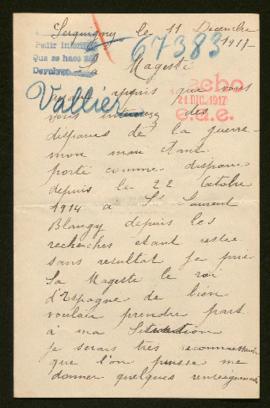 Serquigny le 11 Décembre
1917
67383
Pedir
Que se hace
Sa Majesté
echo
21 DIC. 1917
Vallier
depuis que vous
vous des
disparus de la guerre
mon mari étant
porté comme disparu
depuis le 22 Octobre
1914 a St Laurent
Blangy depuis les
recherches étant restée
sans resultat je prie
Sa Majesté le roi
d'Espagne de bien
vouloir prendre part
à ma
je serais très reconnaissante
que l'on puisse me
donner quelques renseignements